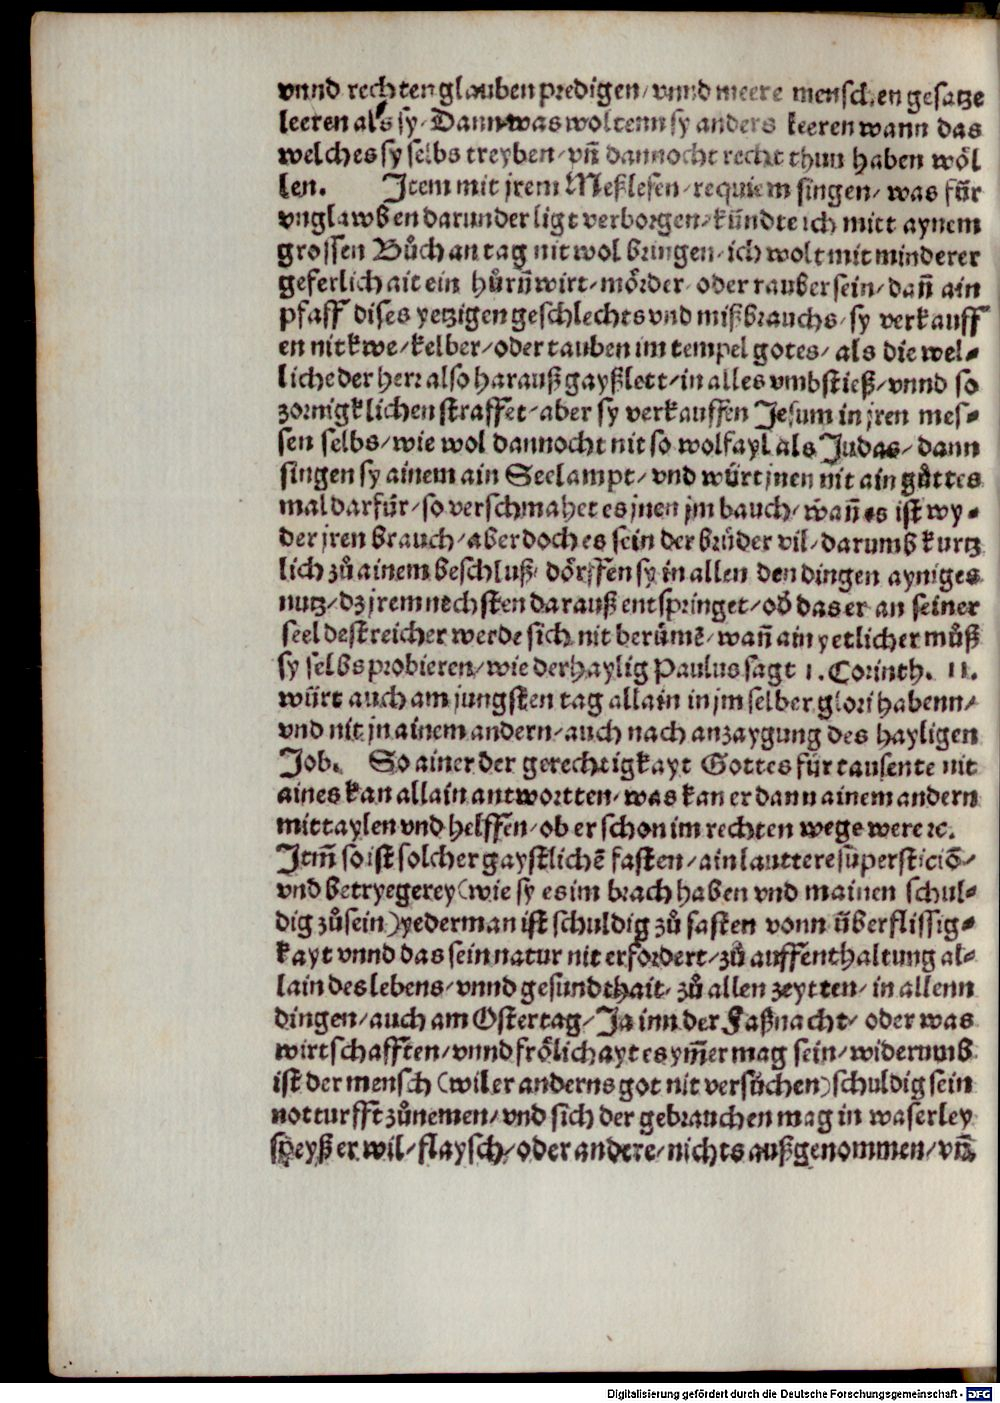 vnnd rechten glauben predigen/ vnnd meere menschen gesatze
leeren als sy/ Dann was woltenn sy anders keeren wann das
welches sy selbs treyben/ vñ dannocht recht thun haben wöl
len. Item mit jrem Meßlesen/ requiem singen/ was für
vnglawben darunder ligt verborgen/ kündte ich mitt aynem
grossen Bůch an tag nit wol bringen/ ich wolt mit minderer
geferlichait ein hůrñwirt/ mörder/ oder rauber sein/ dañ ain
pfaff dises yetzigen geschlechts vnd mißbrauchs/ sy verkauff
en nit kwe/ kelber/ oder tauben im tempel gotes/ als die wel⸗
liche der herr also harauß gayßlett/ in alles vmbstieß/ vnnd so
zornigklichen straffet/ aber sy verkauffen Jesum in jren mes⸗
sen selbs/ wie wol dannocht nit so wolfayl als Judas/ dann
singen sy ainem ain Seelampt/ vnd würt jnen nit ain gůttes
mal darfür/ so verschmahet es jnen jm bauch/ wañ es ist wy⸗
der jren brauch/ aber doch es sein der brüder vil/ darumb kurtz
lich zů ainem beschluß/ dörffen sy in allen den dingen ayniges
nutz/ dz jrem nechsten darauß entspringet/ ob das er an seiner
seel dest reicher werde sich nit berümẽ/ wañ ain yetlicher můß
sy selbs probieren/ wie der haylig Paulus sagt 1. Corinth. 11.
würt auch am jungsten tag allain in jm selber glori habenn/
vnd nit jn ainem andern/ auch nach anzaygung des hayligen
Job. So ainer der gerechtigkayt Gottes für tausente nit
aines kan allain antwortten/ was kan er dann ainem andern
mittaylen vnd helffen/ ob er schon im rechten wege were ꝛc.
Itm̃ so ist solcher gaystlichẽ fasten/ ain lauttere supersticiõ/
vnd betryegerey (wie sy es im brach haben vnd mainen schul⸗
dig zů sein) yederman ist schuldig zů fasten vonn überflissig⸗
kayt vnnd das sein natur nit erfordert/ zů auffenthaltung al⸗
lain des lebens/ vnnd gesundthait/ zů allen zeytten/ in allenn
dingen/ auch am Ostertag/ Ja inn der Faßnacht/ oder was
wirtschafften/ vnnd frölichayt es ym̃er mag sein/ widerumb
ist der mensch (wil er anderns got nit versůchen) schuldig sein
notturfft zůnemen/ vnd sich der gebrauchen mag in waserley
speyß er wil/ flaysch/ oder andere/ nichts außgenommen/ vñ
Digitalisierung gefördert durch die Deutsche Forschungsgemeinschaft - DFG